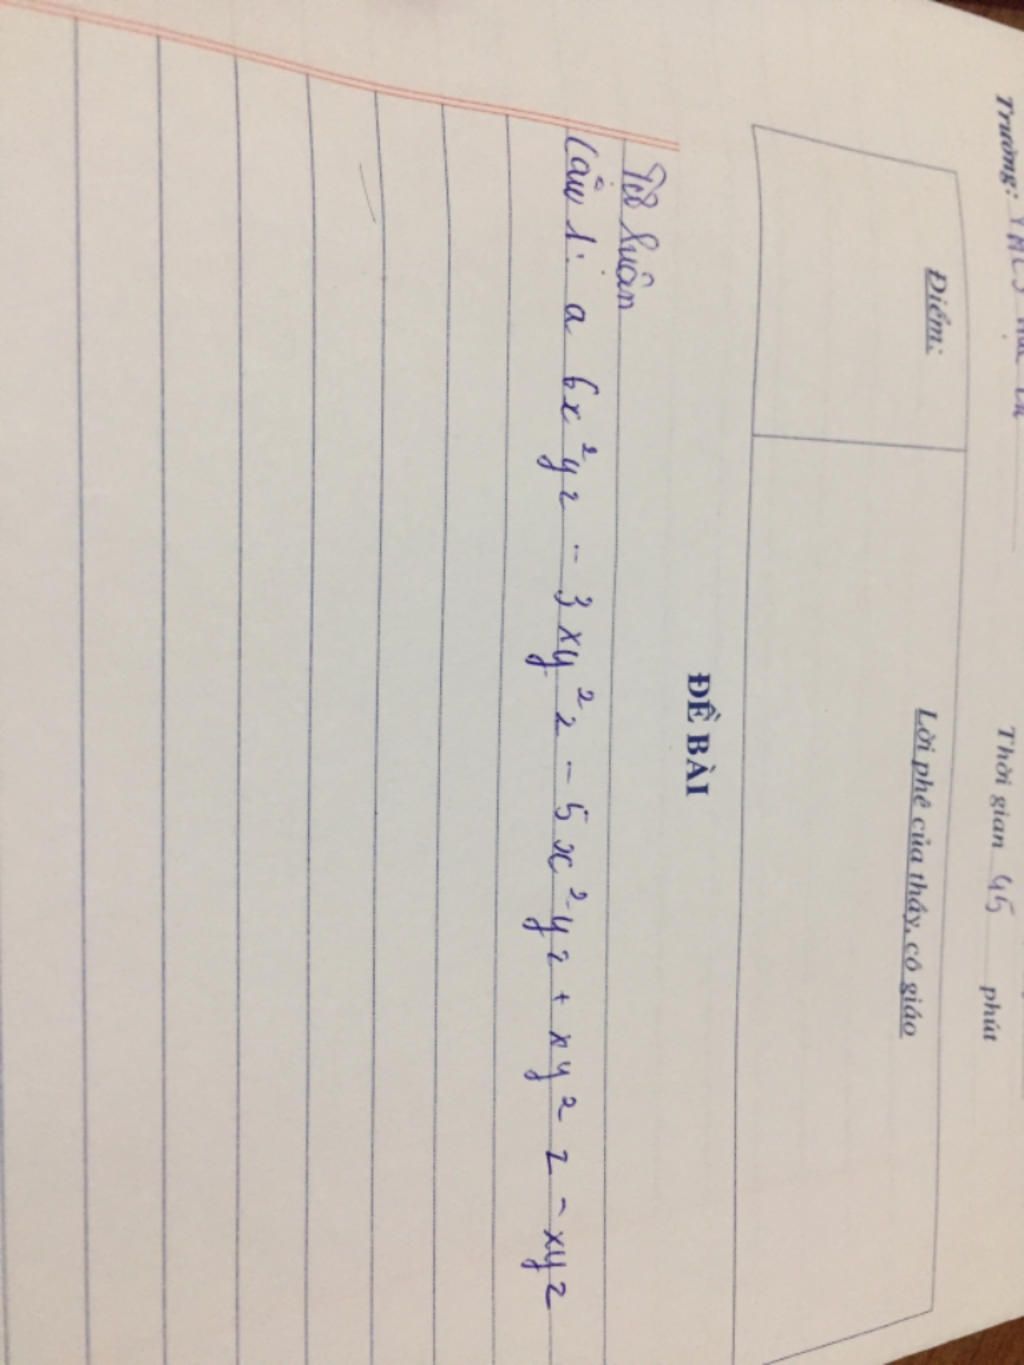 Trường: THCS
Thời gian 45 phút
Điểm:
Lời phê của thầy, cô giáo
ĐỀ BÀI
Xuân
Câu 1: a 6x²yz - 3xy²z - 5x²yz + xy²z - xyz